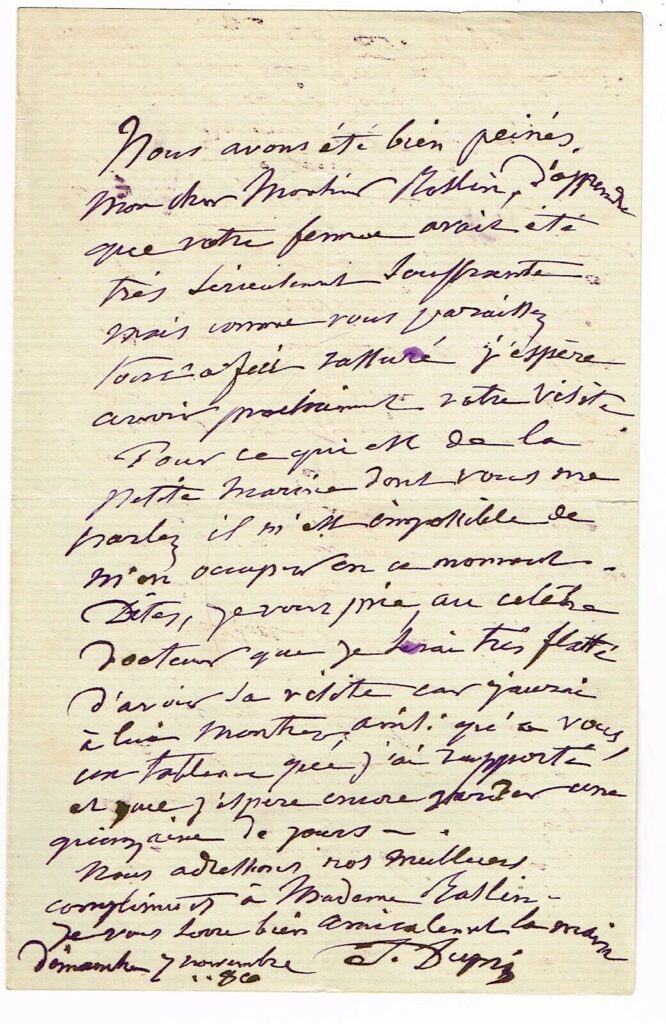 Nous avons été bien peinés,
mon cher Monsieur Rollin, d'apprendre
que votre femme avait été
très sérieusement souffrante
mais comme vous paraissez
tout à fait rassuré j'espère
avoir prochainement votre visite.
Pour ce qui est de la
petite marine dont vous me
parlez il m'est impossible de
m'en occuper en ce moment.
Dites, je vous prie au célèbre
docteur que je serai très flatté
d'avoir sa visite car j'aurai
à lui montrer, ainsi qu'à vous,
un tableau que j'ai rapporté
et que j'espère encore garder une
quinzaine de jours —.
Nous adressons nos meilleurs
compliments à Madame Rollin —
je vous serre bien amicalement la main
Dimanche 7 novembre J. Dupré
..86